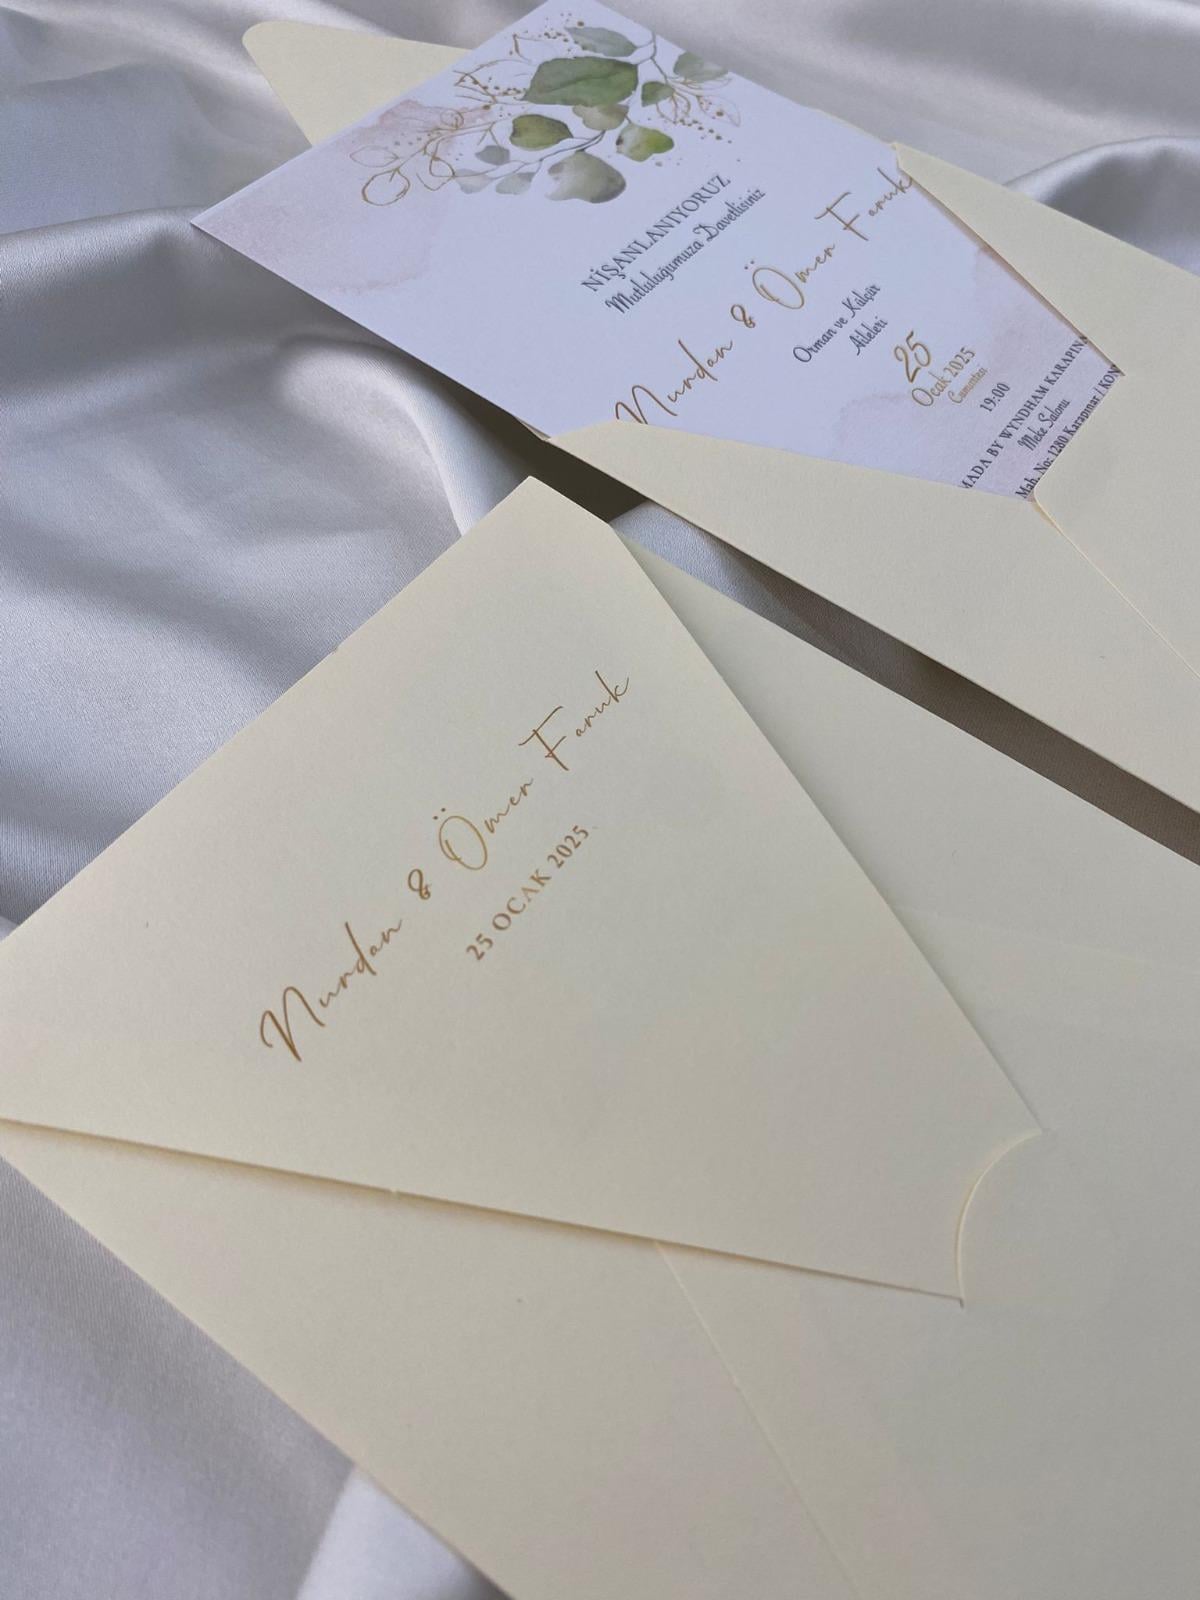 NİŞANLANIYORUZ
Mutluluğumuza Davetlisiniz
Nurdan & Ömer Faruk
Orman ve Kılçar
Aileleri
25
Ocak 2025
Cumartesi
19:00
MADA BY WYNDHAM KARAPINA
Meke Salonu
Mah. No: 1280 Karapınar / KON
Nurdan & Ömer Faruk
25 OCAK 2025